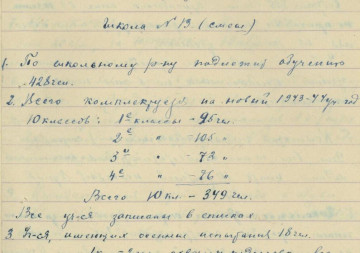 Школа N 13 (смеш)
1. По школьному р-ну подлежит обучению
428 чел.
2. Всего комплектуется на новый 1943-44 уч. год
10 классов: 1е классы - 95 чел.
2е " - 105 "
3и " - 73 "
4е " - 76 "
Всего 10 кл. - 349 чел.
Все уч-ся записаны в списках
3. Уч-ся, имеющих осенние испытания 18 чел.